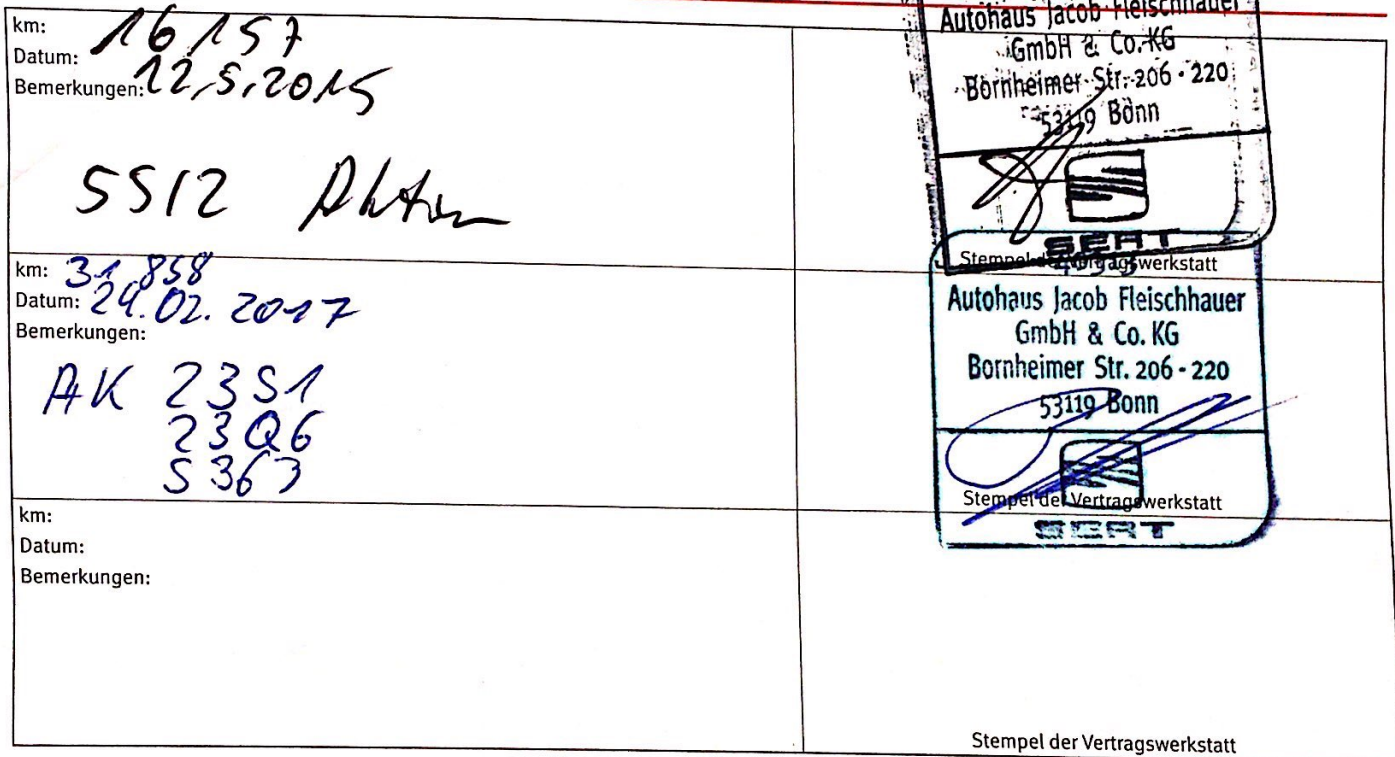 km: 16 157
Datum: 12.5.2015
Bemerkungen:
55I2 Aktion
Autohaus Jacob Fleischhauer
GmbH & Co. KG
Bornheimer Str. 206 - 220
53119 Bonn
SEAT
Stempel der Vertragswerkstatt
km: 31.858
Datum: 24.02.2017
Bemerkungen:
AK 23S1
23Q6
S363
Autohaus Jacob Fleischhauer
GmbH & Co. KG
Bornheimer Str. 206 - 220
53119 Bonn
Stempel der Vertragswerkstatt
SEAT
km:
Datum:
Bemerkungen:
Stempel der Vertragswerkstatt